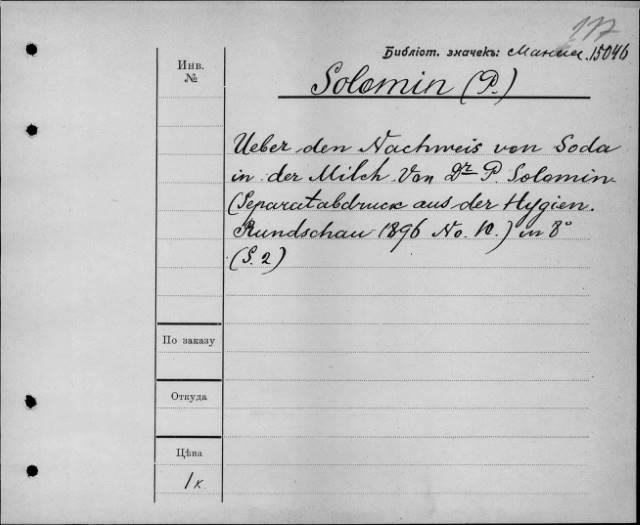 117
Библіот. значекъ: 15046
Инв.
№
Solomin (P.)
Ueber den Nachweis von Soda
in der Milch. Von Dr P. Solomin
(Separatabdruck aus der Hygien.
Rundschau 1896 No. 10.) in 8°
(S. 2)
По заказу
Откуда
Цѣна
1 к.